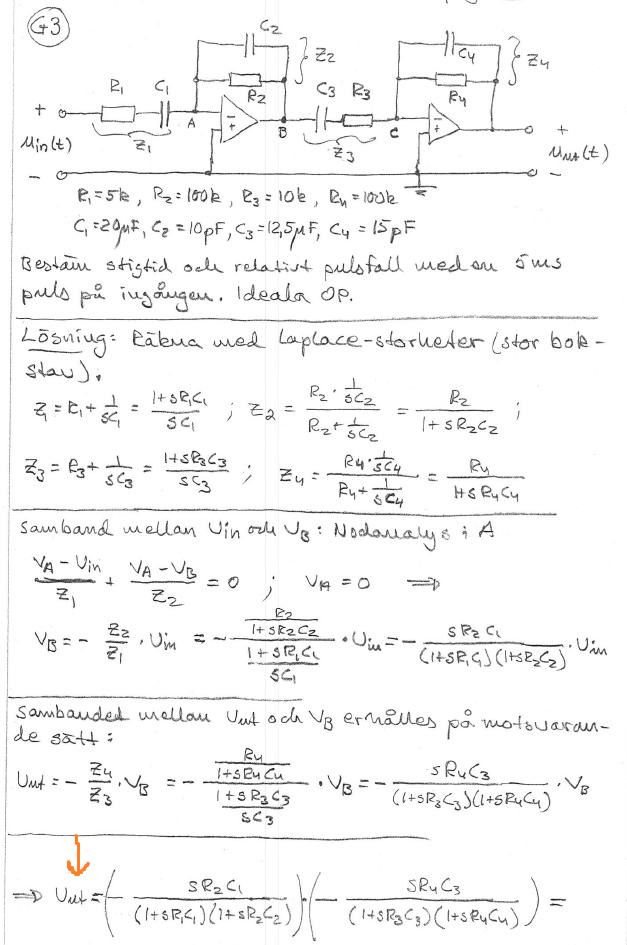 G3
C2
C4
Z2
Z4
R1 C1 R2 C3 R3 R4
+ A B C +
Uin(t) Z1 Z3 Uut(t)
- -
R1=5k, R2=100k, R3=10k, R4=100k
C1=20µF, C2=10pF, C3=12,5µF, C4=15pF
Bestäm stigtid och relativt pulsfall med en 5ms
puls på ingången. Ideala OP.
Lösning: Räkna med Laplace-storheter (stor bok-
stav).
Z1 = R1 + 1/(sC1) = (1+sR1C1)/(sC1) ; Z2 = (R2 · 1/(sC2))/(R2 + 1/(sC2)) = R2/(1+sR2C2) ;
Z3 = R3 + 1/(sC3) = (1+sR3C3)/(sC3) ; Z4 = (R4 · 1/(sC4))/(R4 + 1/(sC4)) = R4/(1+sR4C4)
Samband mellan Uin och VB: Nodanalys i A
(VA - Uin)/Z1 + (VA - VB)/Z2 = 0 ; VA = 0 ⇒
VB = - Z2/Z1 · Uin = - (R2/(1+sR2C2))/((1+sR1C1)/(sC1)) · Uin = - sR2C1/((1+sR1C1)(1+sR2C2)) · Uin
Sambandet mellan Uut och VB erhålles på motsvaran-
de sätt:
Uut = - Z4/Z3 · VB = - (R4/(1+sR4C4))/((1+sR3C3)/(sC3)) · VB = - sR4C3/((1+sR3C3)(1+sR4C4)) · VB
⇒ Uut = (- sR2C1/((1+sR1C1)(1+sR2C2))) · (- sR4C3/((1+sR3C3)(1+sR4C4))) =